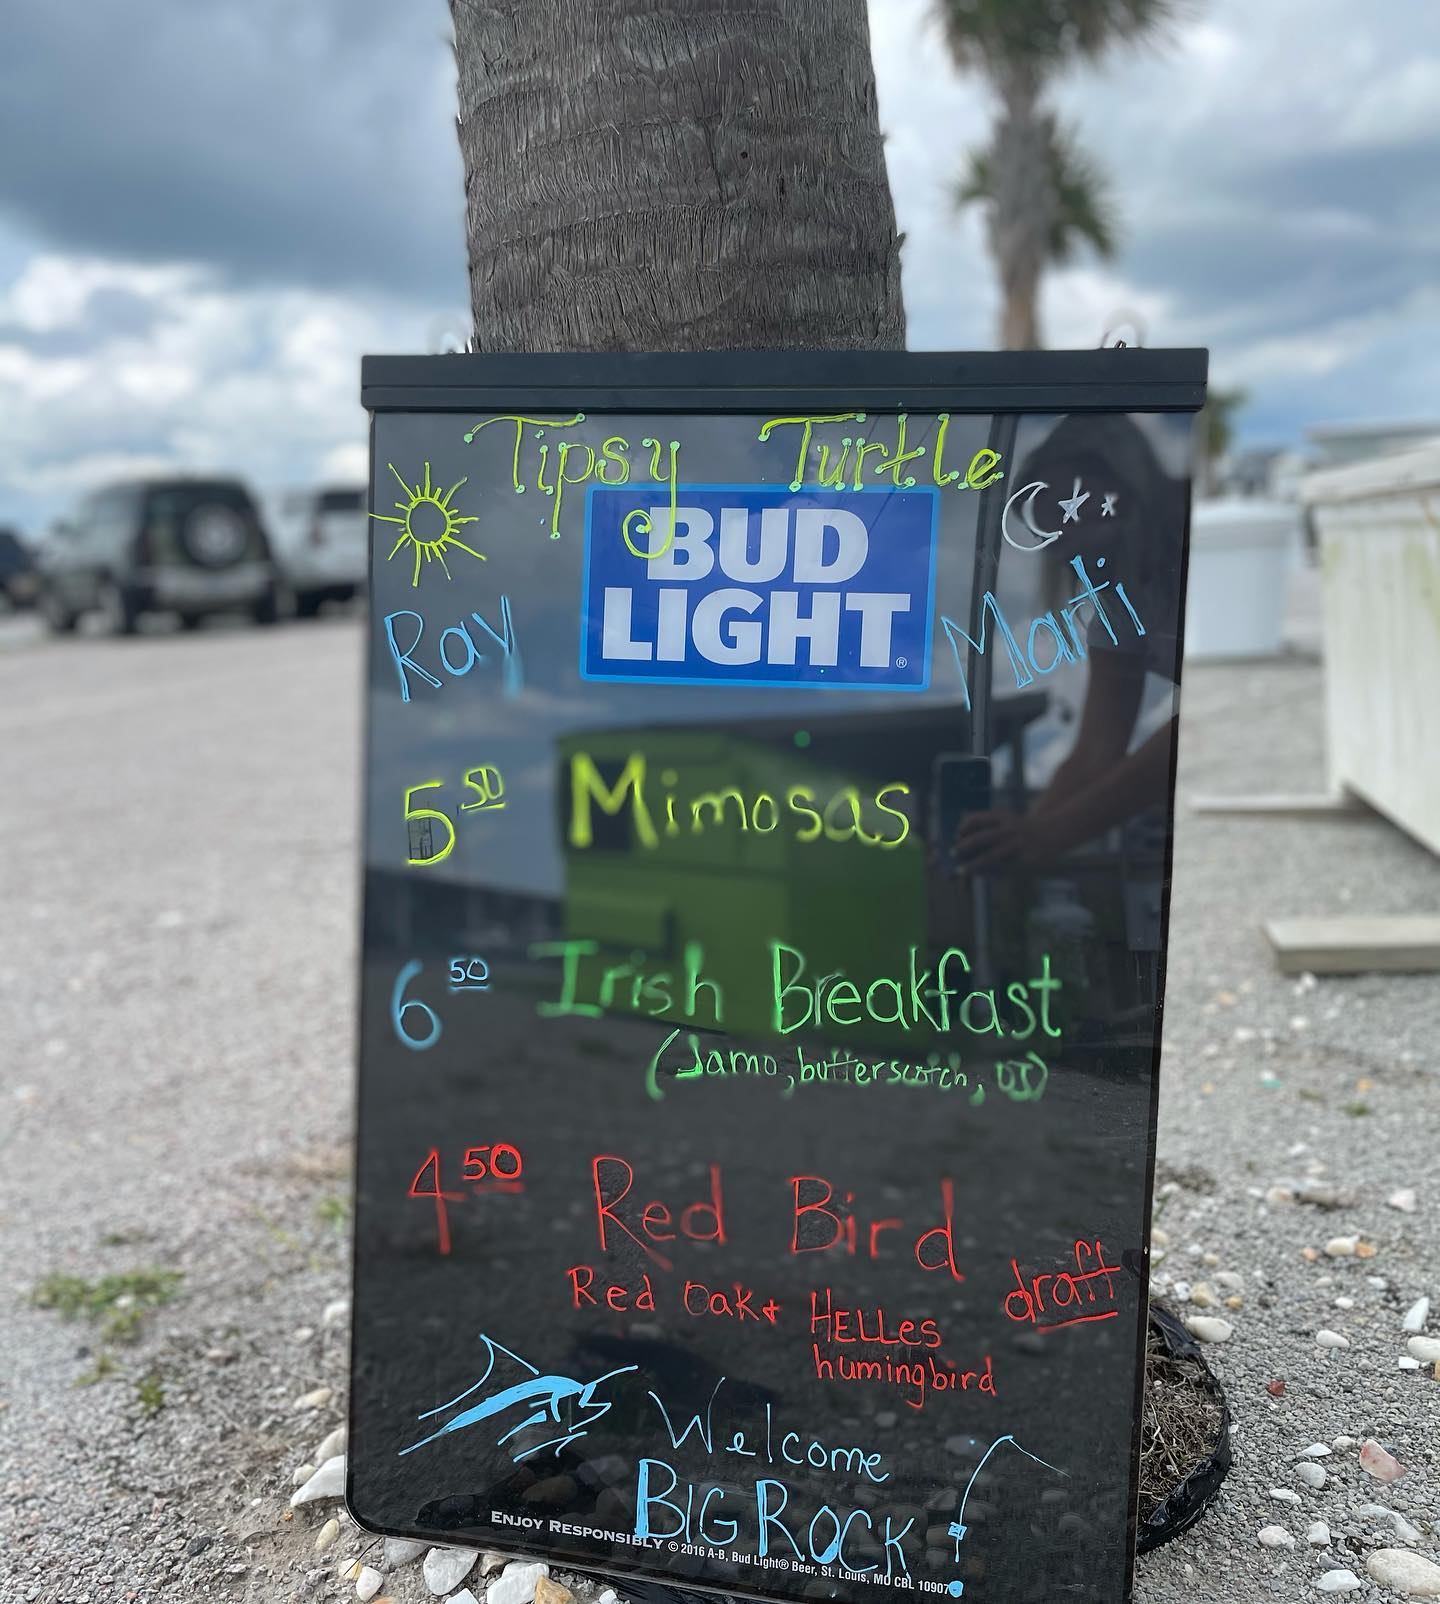 Tipsy Turtle
BUD
LIGHT®
Ray
Marti
5 50 Mimosas
6 50 Irish Breakfast
(Jamo, butterscotch, OJ)
4 50 Red Bird
Red Oak + HELLes
humingbird
draft
Welcome
BIG ROCK!
ENJOY RESPONSIBLY © 2016 A-B, Bud Light® Beer, St. Louis, MO CBL 10907